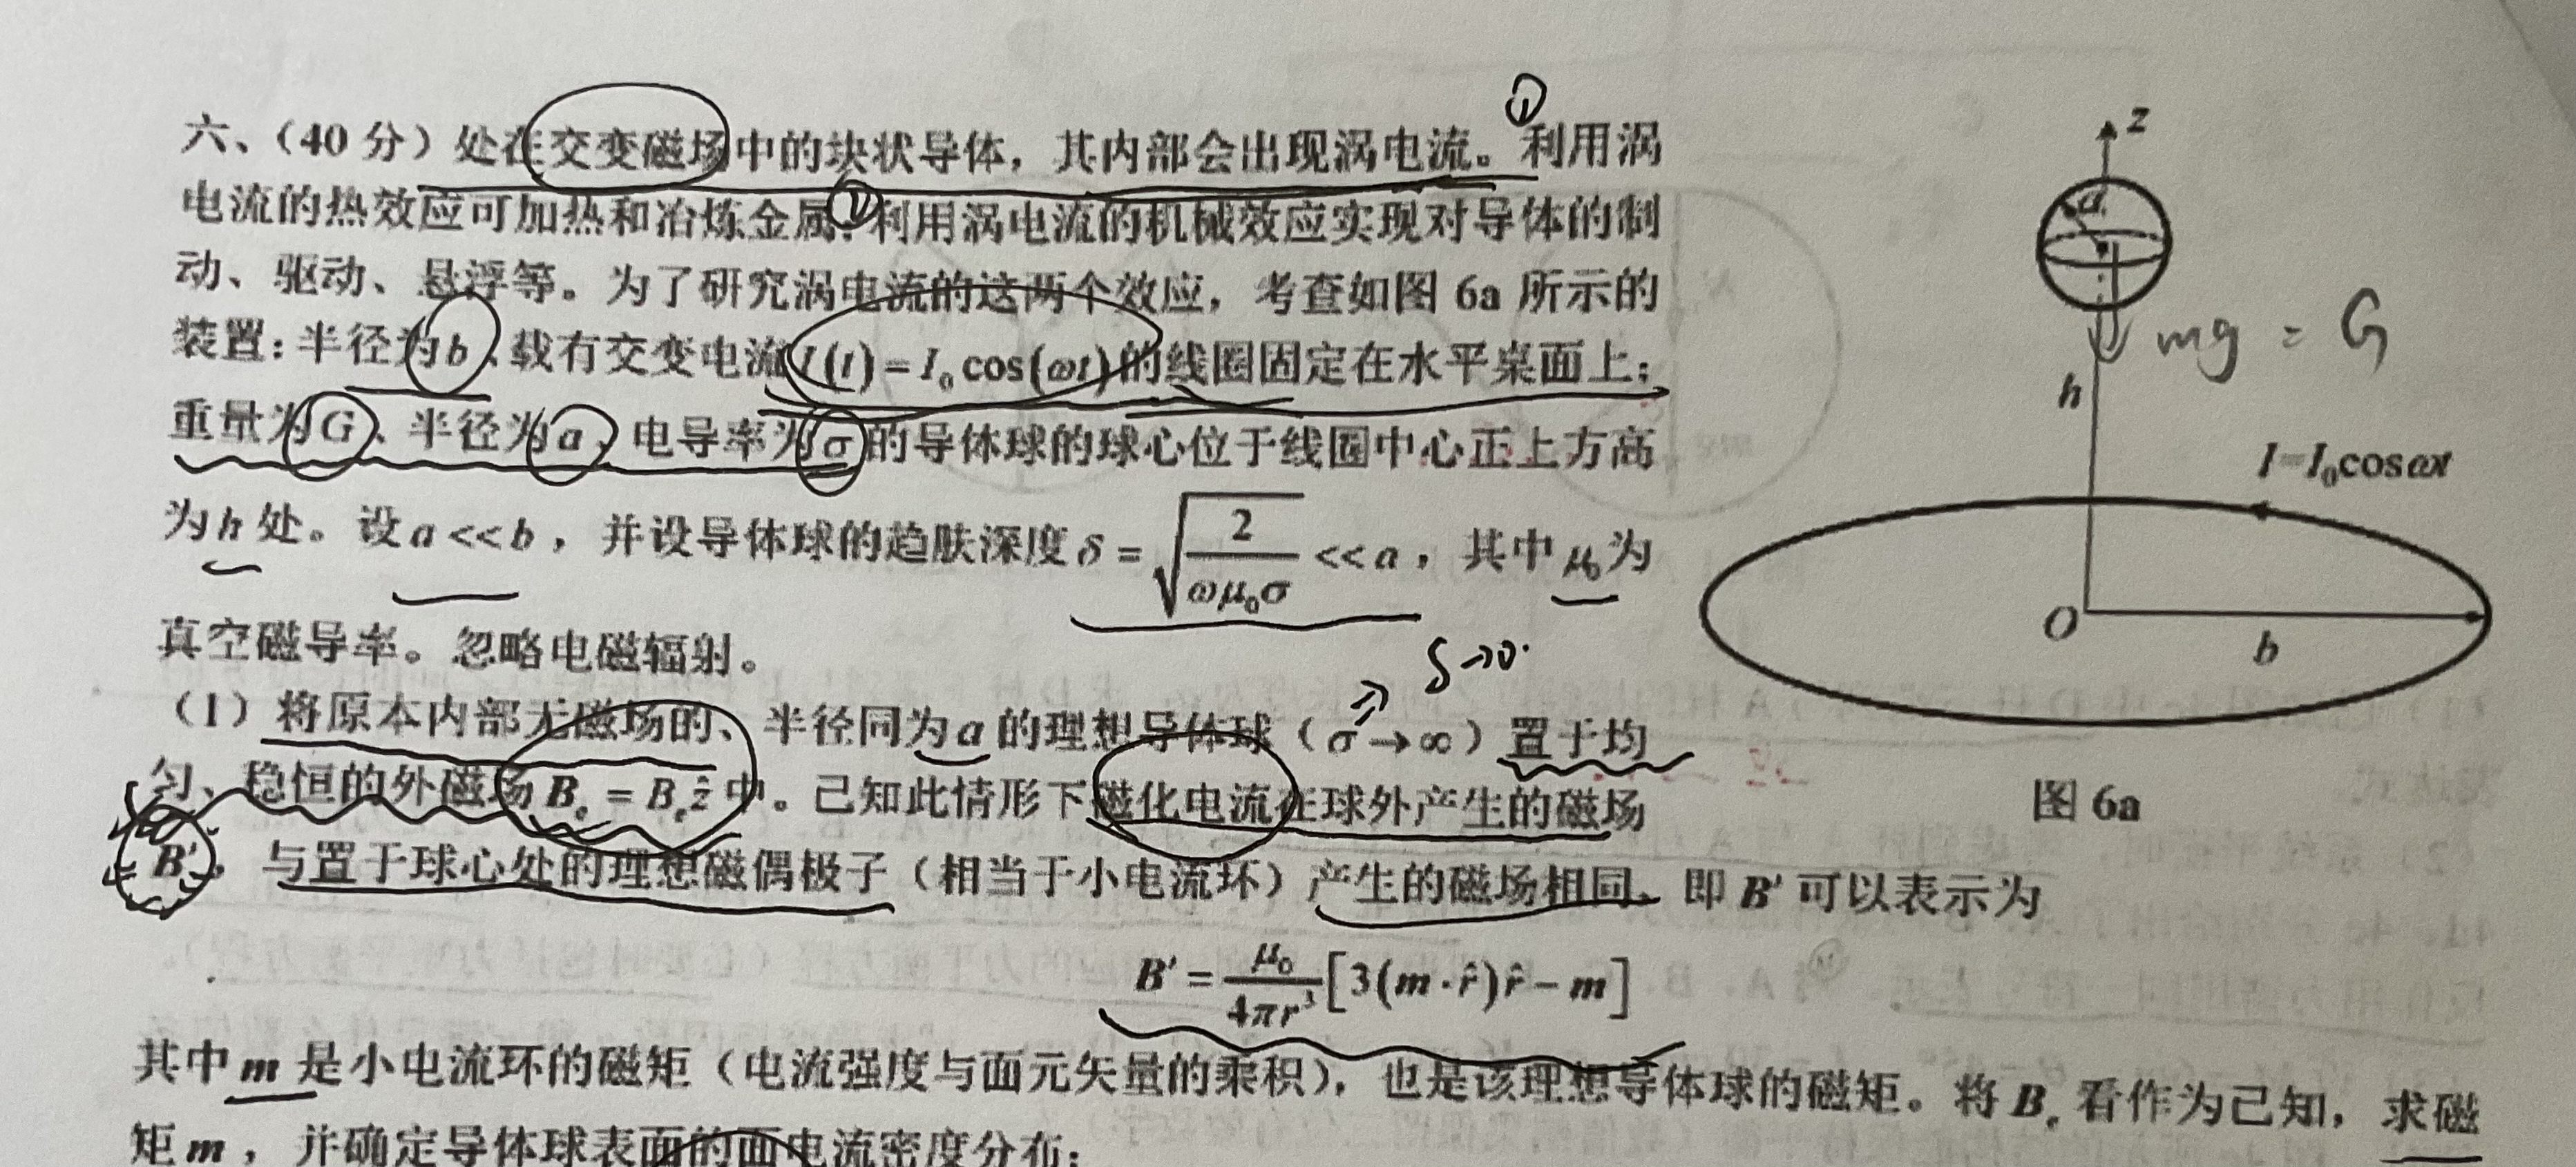 六、（40 分）处在交变磁场中的块状导体，其内部会出现涡电流。利用涡
电流的热效应可加热和冶炼金属；利用涡电流的机械效应实现对导体的制
动、驱动、悬浮等。为了研究涡电流的这两个效应，考查如图 6a 所示的
装置：半径为 b、载有交变电流 I(t) = I₀ cos(ωt) 的线圈固定在水平桌面上；
重量为 G、半径为 a、电导率为 σ 的导体球的球心位于线圈中心正上方高
为 h 处。设 a << b，并设导体球的趋肤深度 δ = √(2/(ωμ₀σ)) << a，其中 μ₀ 为
真空磁导率。忽略电磁辐射。
δ→0
（1）将原本内部无磁场的、半径同为 a 的理想导体球（σ → ∞）置于均
匀、稳恒的外磁场 Bₑ = Bₑẑ 中。已知此情形下磁化电流在球外产生的磁场
B′，与置于球心处的理想磁偶极子（相当于小电流环）产生的磁场相同，即 B′ 可以表示为
B′ = μ₀/(4πr³) [3(m · r̂)r̂ − m]
其中 m 是小电流环的磁矩（电流强度与面元矢量的乘积），也是该理想导体球的磁矩。将 Bₑ 看作为已知，求磁
矩 m，并确定导体球表面的面电流密度分布；
z
a
mg = G
h
I=I₀cosωt
O
b
图 6a